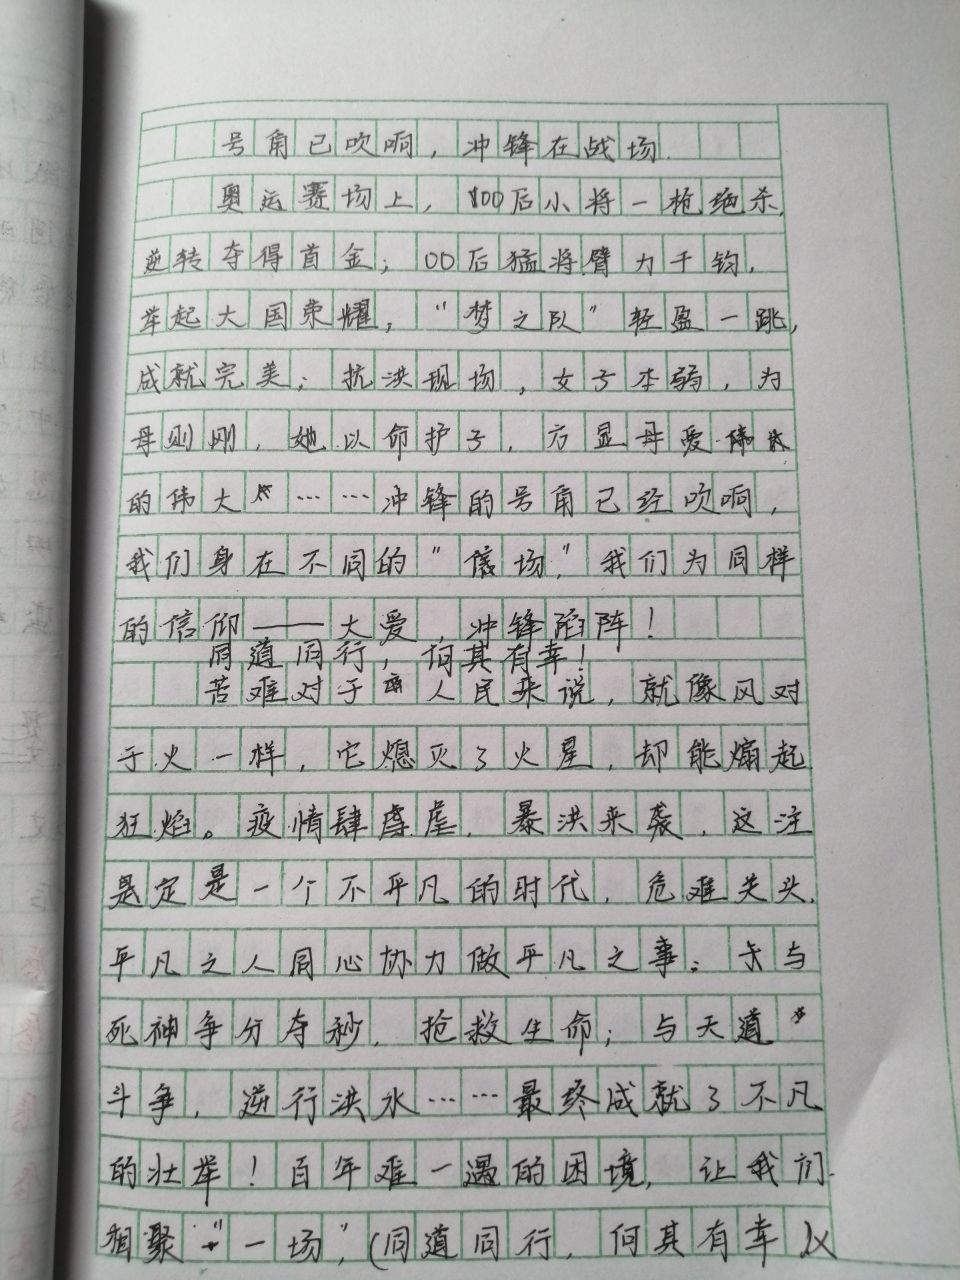 号角已吹响，冲锋在战场.
奥运赛场上，00后小将一枪绝杀,
逆转夺得首金；00后猛将臂力千钧,
举起大国荣耀，“梦之队”轻盈一跳,
成就完美；抗洪现场，女子本弱，为
母则刚，她以命护子，方显母爱
的伟大……冲锋的号角已经吹响，
我们身在不同的“信场”.我们为同样
的信仰——大爱，冲锋陷阵！
同道同行，何其有幸！
苦难对于 人民来说，就像风对
于火一样，它熄灭了火星，却能煽起
狂焰。疫情肆虐，暴洪来袭，这注
定是一个不平凡的时代，危难关头,
平凡之人同心协力做平凡之事：与
死神争分夺秒，抢救生命；与天道
斗争，逆行洪水……最终成就了不凡
的壮举！百年难一遇的困境，让我们
相聚“一场”,(同道同行，何其有幸